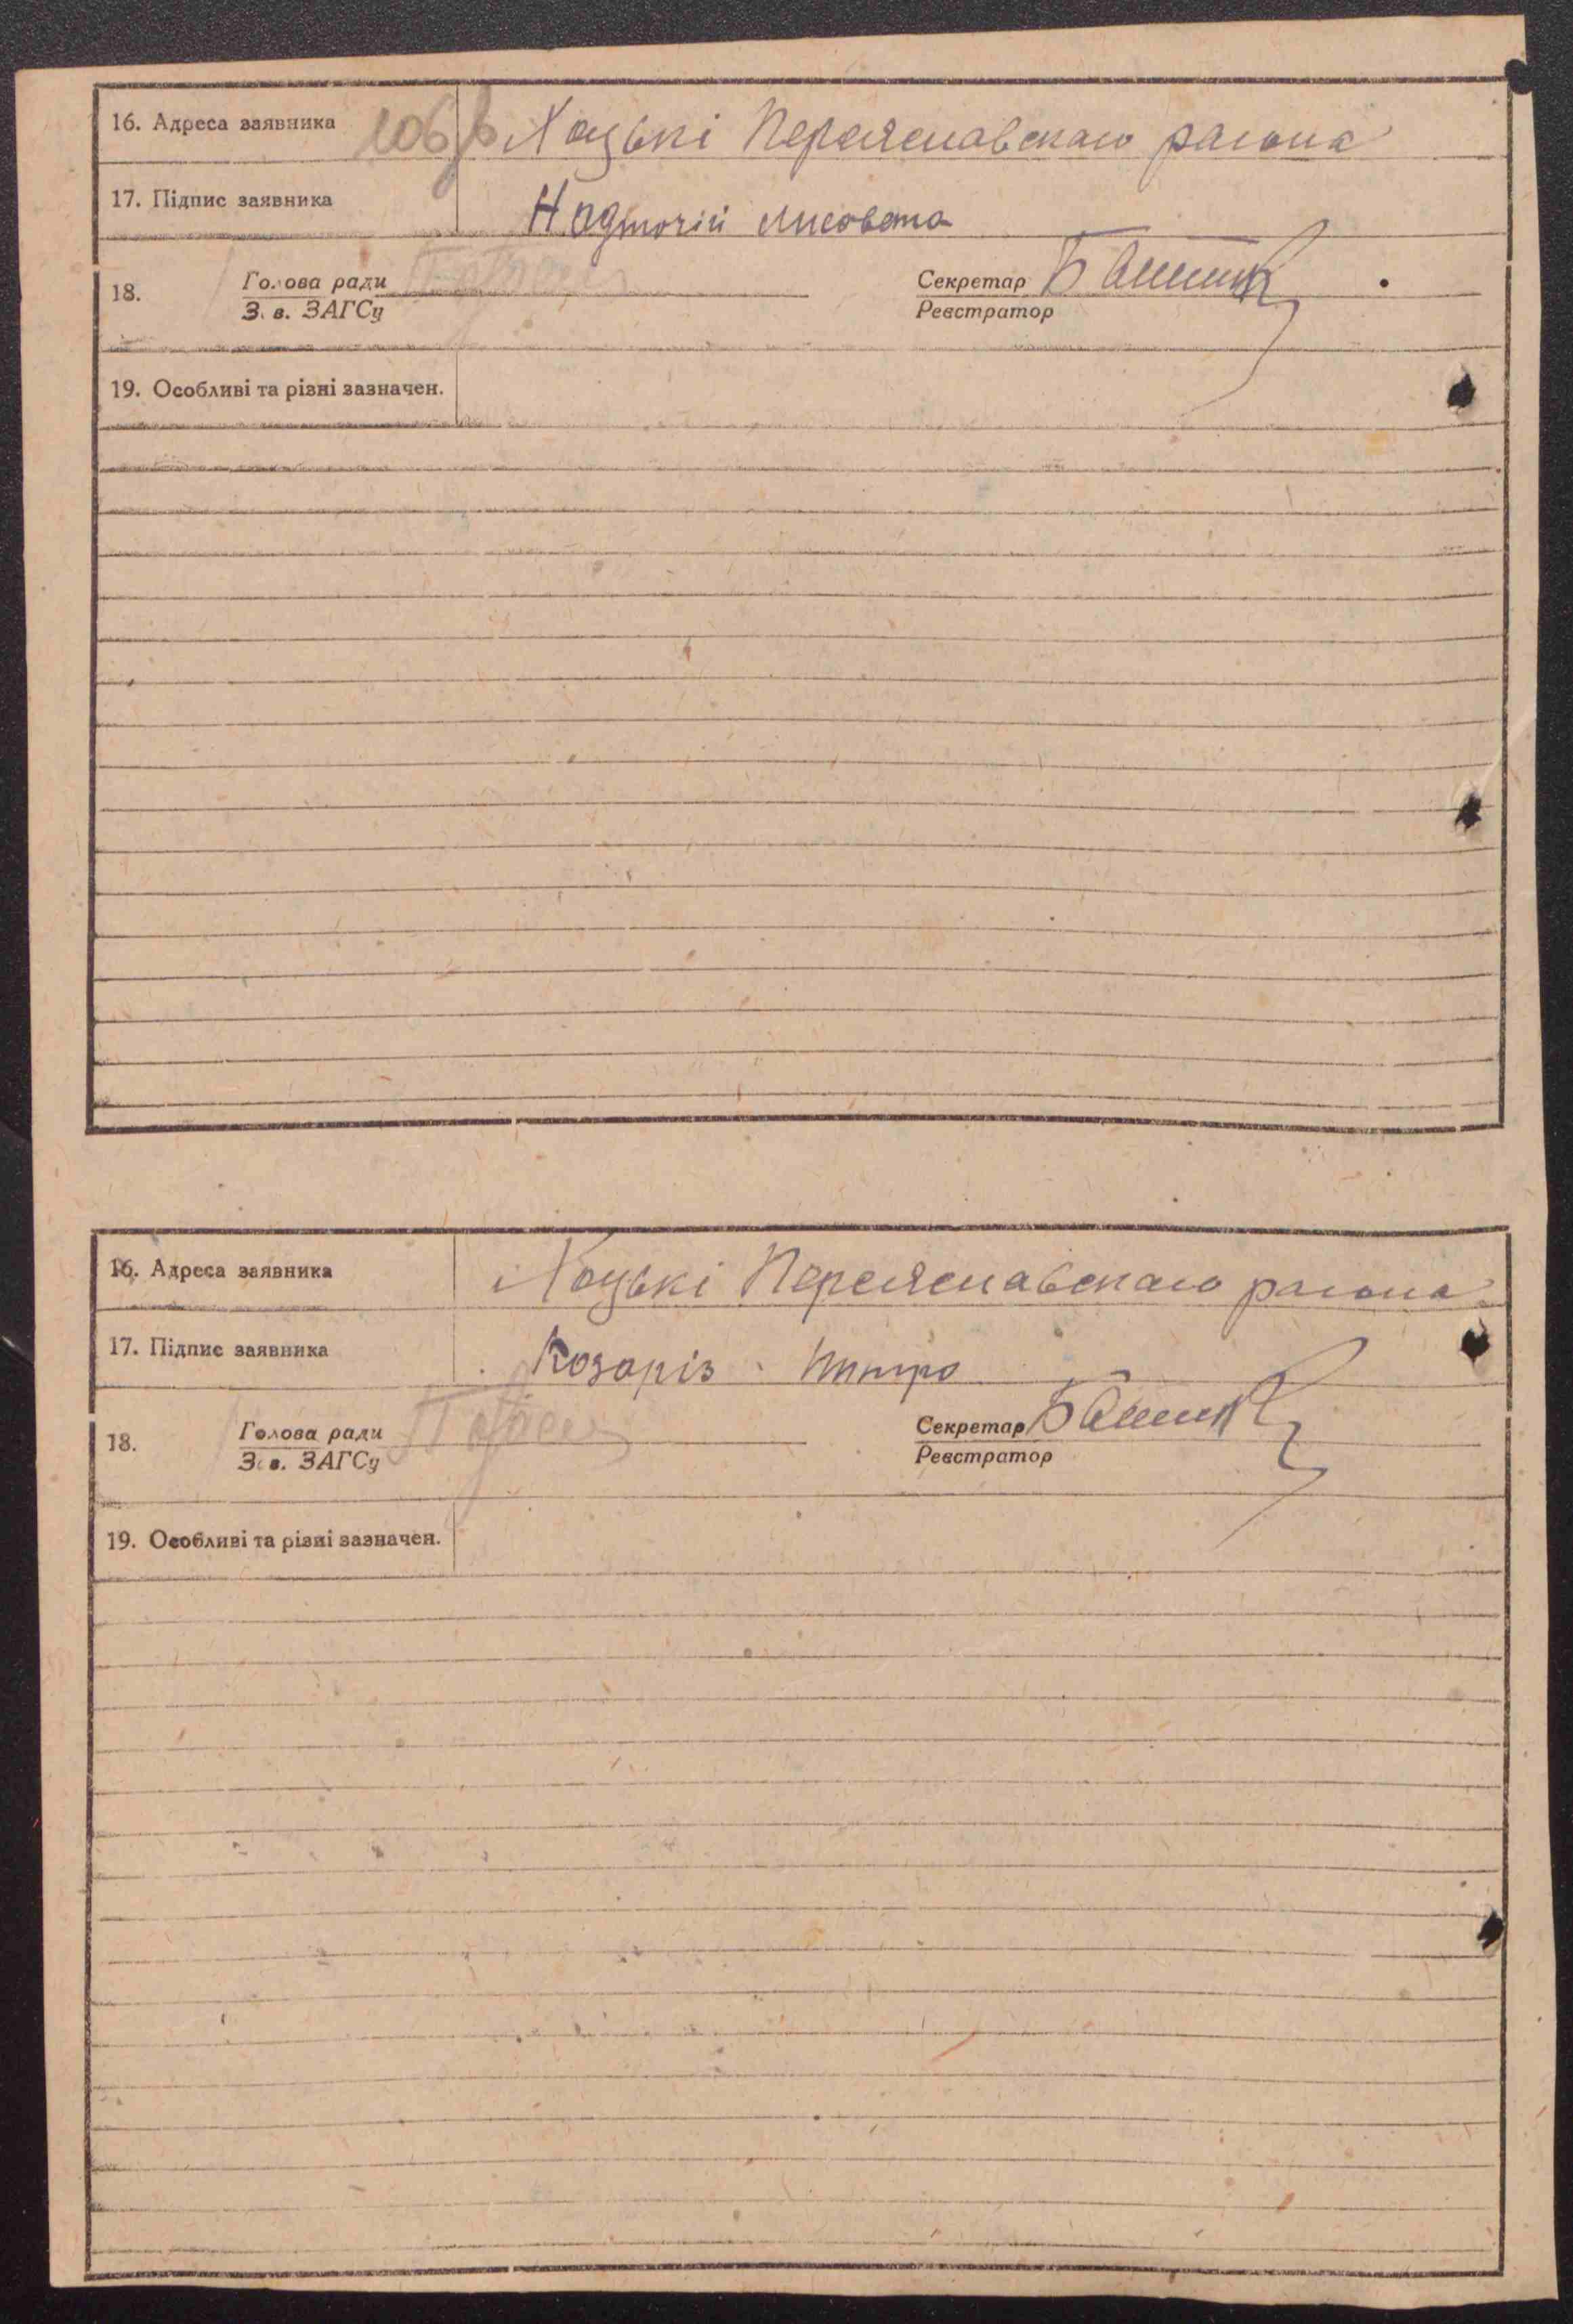 16. Адреса заявника Хоцькі Переяславського району
17. Підпис заявника Надточій Лисовета
18. Голова ради Секретар
Зав. ЗАГСу Реєстратор
19. Особливі та різні зазначен.
16. Адреса заявника Хоцькі Переяславського району
17. Підпис заявника Козоріз
18. Голова ради Секретар
Зав. ЗАГСу Реєстратор
19. Особливі та різні зазначен.